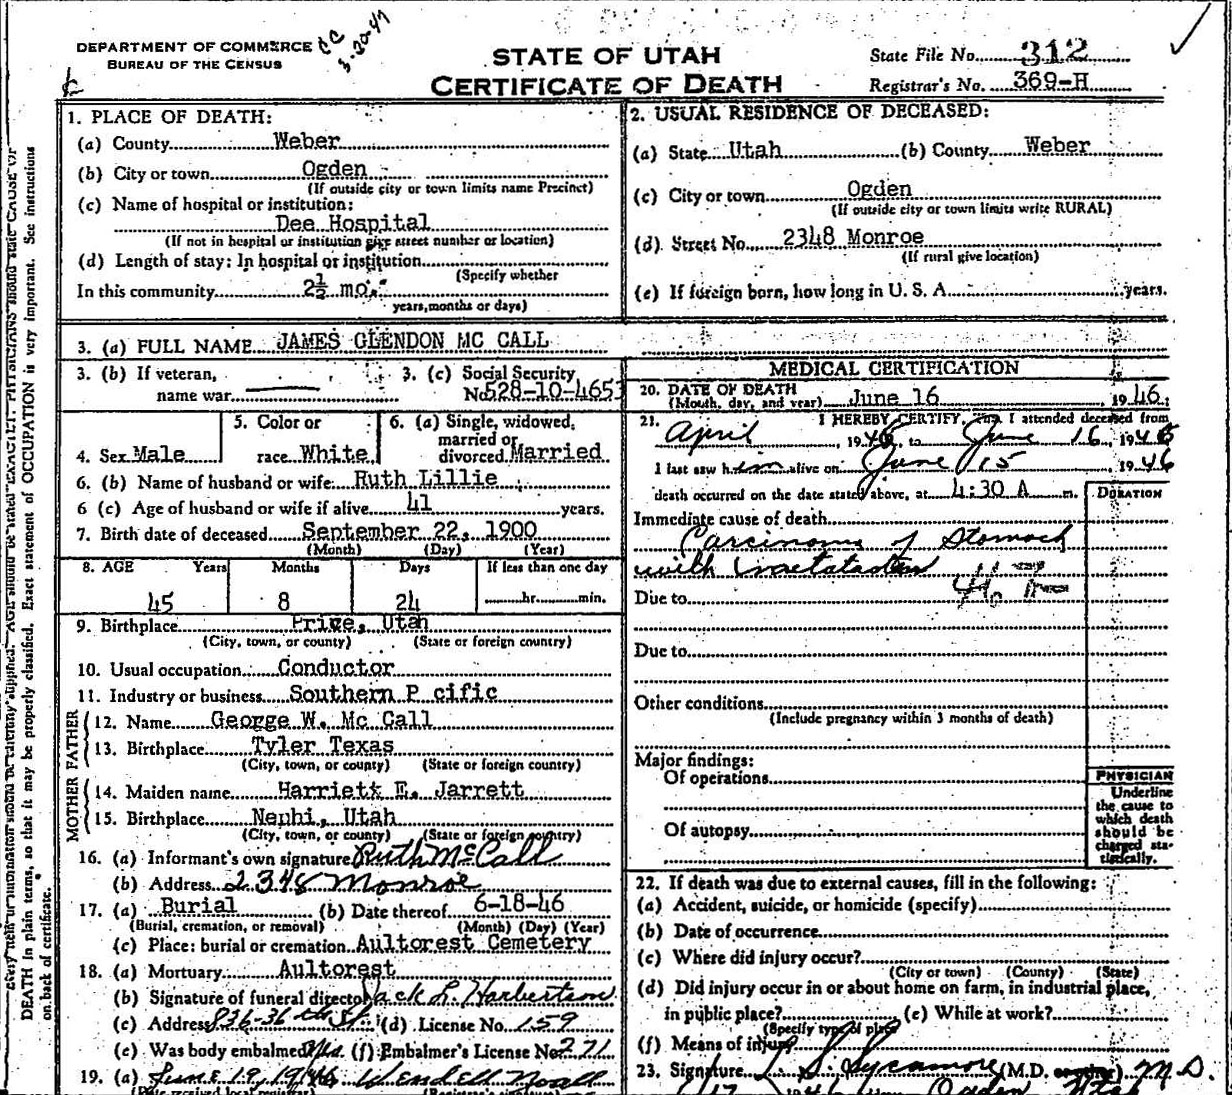 DEPARTMENT OF COMMERCE
BUREAU OF THE CENSUS
CC
3-20-47
STATE OF UTAH
CERTIFICATE OF DEATH
State File No. 312
Registrar's No. 369-H
1. PLACE OF DEATH:
(a) County Weber
(b) City or town Ogden
(If outside city or town limits name Precinct)
(c) Name of hospital or institution:
Dee Hospital
(If not in hospital or institution give street number or location)
(d) Length of stay: In hospital or institution
(Specify whether
In this community 2½ mo.
years, months or days)
2. USUAL RESIDENCE OF DECEASED:
(a) State Utah (b) County Weber
(c) City or town Ogden
(If outside city or town limits write RURAL)
(d) Street No. 2348 Monroe
(If rural give location)
(e) If foreign born, how long in U. S. A. years.
3. (a) FULL NAME JAMES GLENDON MC CALL
3. (b) If veteran, name war
3. (c) Social Security No. 528-10-4653
4. Sex Male
5. Color or race White
6. (a) Single, widowed, married or divorced Married
6. (b) Name of husband or wife Ruth Lillie
6 (c) Age of husband or wife if alive 41 years.
7. Birth date of deceased September 22, 1900
(Month) (Day) (Year)
8. AGE Years Months Days If less than one day
45 8 24 hr. min.
9. Birthplace Price, Utah
(City, town, or county) (State or foreign country)
10. Usual occupation Conductor
11. Industry or business Southern P cific
FATHER
12. Name George W. Mc Call
13. Birthplace Tyler Texas
(City, town, or county) (State or foreign country)
MOTHER
14. Maiden name Harriett E. Jarrett
15. Birthplace Nephi, Utah
(City, town, or county) (State or foreign country)
16. (a) Informant's own signature Ruth McCall
(b) Address 2348 Monroe
17. (a) Burial (b) Date thereof 6-18-46
(Burial, cremation, or removal) (Month) (Day) (Year)
(c) Place: burial or cremation Aultorest Cemetery
18. (a) Mortuary Aultorest
(b) Signature of funeral director Jack L. Harbertson
(c) Address 836-36th St. (d) License No. 159
(e) Was body embalmed? Yes. (f) Embalmer's License No. 271
19. (a) June 19, 1946 Wendell Noall
(Date received local registrar) (Registrar's signature)
MEDICAL CERTIFICATION
20. DATE OF DEATH
(Month, day, and year) June 16, 1946;
21. I HEREBY CERTIFY, That I attended deceased from
April, 1946, to June 16, 1946
I last saw him alive on June 15, 1946
death occurred on the date stated above, at 4:30 A m.
DURATION
Immediate cause of death
Carcinoma of Stomach
with metastasis
Due to
Due to
Other conditions
(Include pregnancy within 3 months of death)
Major findings:
Of operations
Of autopsy
PHYSICIAN
Underline
the cause to
which death
should be
charged sta-
tistically.
22. If death was due to external causes, fill in the following:
(a) Accident, suicide, or homicide (specify)
(b) Date of occurrence
(c) Where did injury occur?
(City or town) (County) (State)
(d) Did injury occur in or about home on farm, in industrial place,
in public place? (e) While at work?
(Specify type of place)
(f) Means of injury
23. Signature L. S. Sycamore (M.D. or other) M.D.
Ogden Utah
DEATH in plain terms, so that it may be properly classified. Exact statement of OCCUPATION is very important. See instructions
on back of certificate.